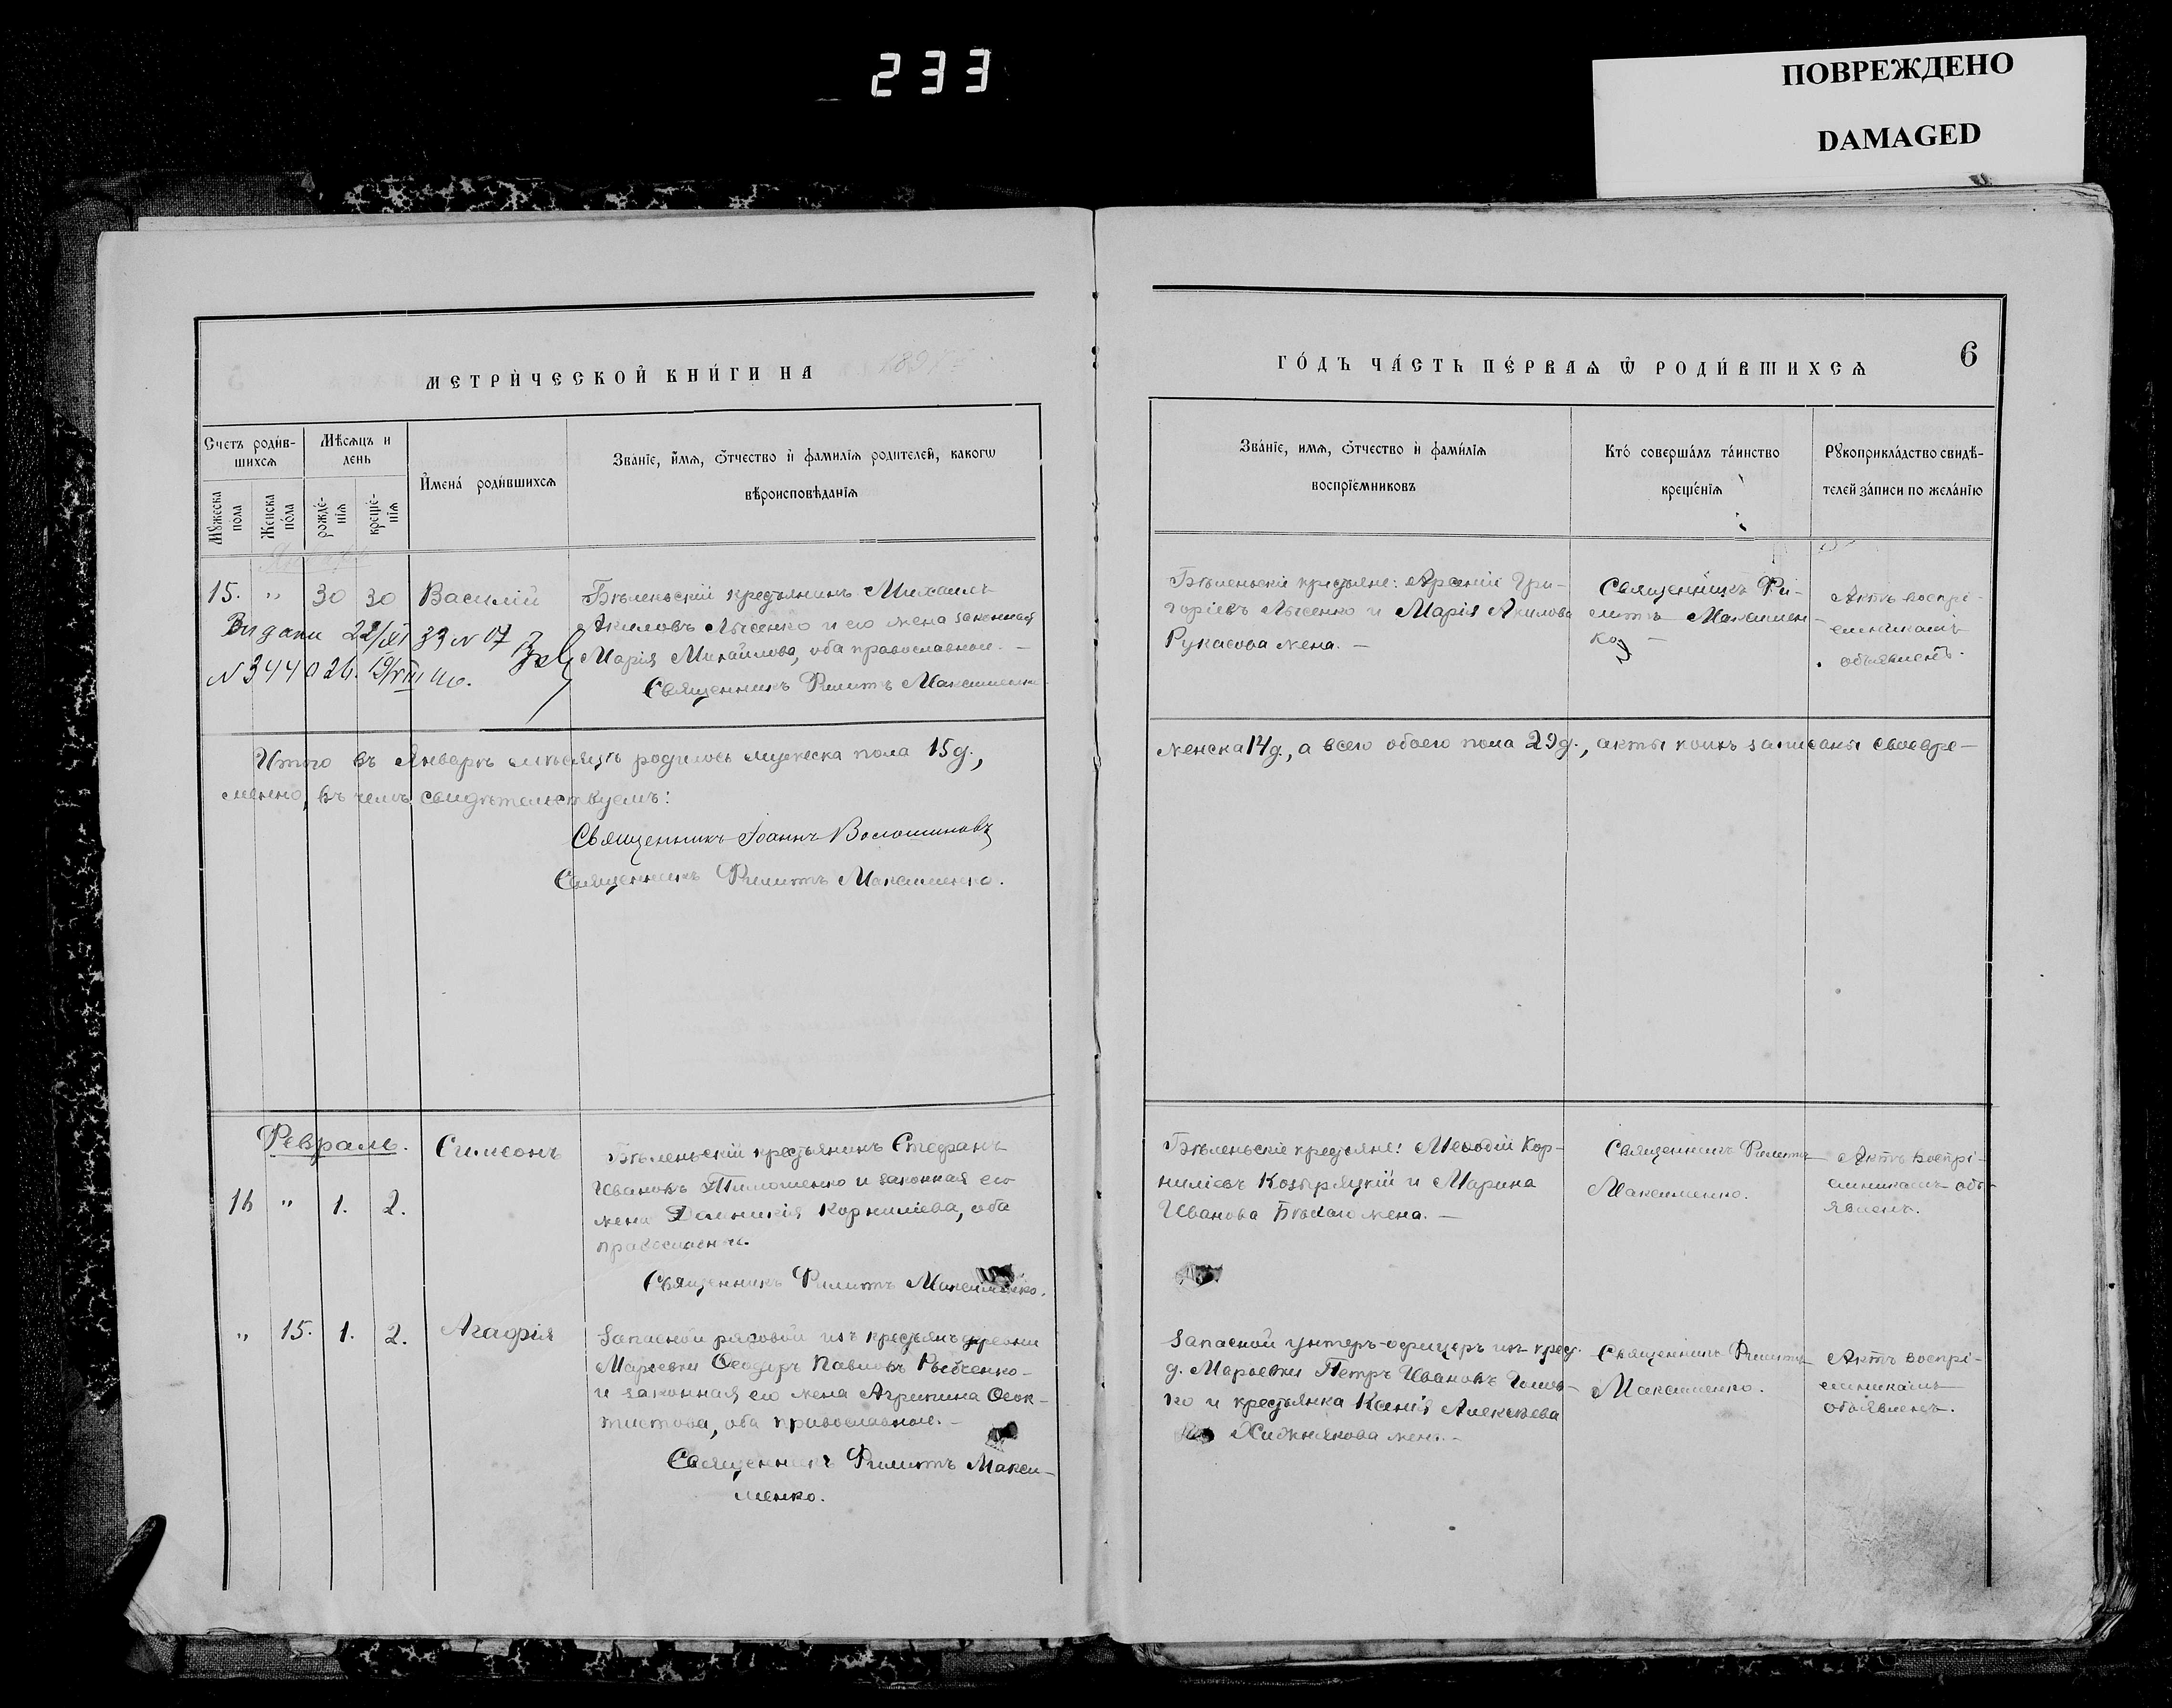 233
ПОВРЕЖДЕНО
DAMAGED
МЕТРИ́ЧЕСКОЙ КНИ́ГИ НА 189
ГО́ДЪ ЧА́СТЬ ПЕ́РВАѦ Ѿ РОДИ́ВШИХСѦ
6
Счетъ роди́в-
шихсѧ
Мѣсѧцъ и
день
Мꙋжеска пола
Женска по́ла
рожде́-
нїѧ
креще́-
нїѧ
И҆мена́ роди́вшихсѧ
Зва́нїе, и҆́мѧ, ѻ҆́тчество и҆ фами́лїѧ роди́телей, какогѡ
вѣроисповѣ́данїѧ
Зва́нїе, имѧ, ѻ҆́тчество и҆ фами́лїѧ
воспрїе́мниковъ
Кто́ соверша́лъ та́инство
креще́нїѧ
Рꙋкоприкла́дство свидѣ́-
телей за́писи по жела́нїю
15. " 30 30 Василій
Бѣленьскій крестьянинъ Михаилъ
Акиловъ Лысенко и его жена законная
Марія Михайлова, оба православные. —
Священникъ Филиппъ Максименко
Видани 22/XI 33 N 07
N 344 0 26. 19/VIII
Бѣленьскіе крестьяне: Арсеній Гри-
горіевъ Лысенко и Марія Акилова
Рукасова жена. —
Священникъ Фи-
липпъ Максимен-
ко —
Актъ воспрі-
емникамъ
объявленъ.
Итого въ Январѣ мѣсяцѣ родилось мужеска пола 15 д.,
женска 14 д., а всего обоего пола 29 д., акты коихъ записаны своевре-
менно, въ чемъ свидѣтельствуемъ:
Священникъ Іоаннъ Волошиновъ
Священникъ Филиппъ Максименко.
Февраль.
16 " 1. 2. Симеонъ
Бѣленьскій крестьянинъ Стефанъ
Ивановъ Тимошенко и законная его
жена Домникія Корниліева, оба
православные.
Священникъ Филиппъ Максименко.
Бѣленьскіе крестьяне: Меѳодій Кор-
ниліевъ Козыряцкій и Марина
Иванова Бѣлаго жена. —
Священникъ Филиппъ
Максименко.
Актъ воспрі-
емникамъ объ-
явленъ.
" 15. 1. 2. Агафія
Запасной рядовой изъ крестьянъ деревни
Марьевки Ѳеодоръ Павловъ Рыбченко
и законная его жена Агрипина Ѳеок-
тистова, оба православные. —
Священникъ Филиппъ Макси-
менко.
Запасной унтеръ-офицеръ изъ крест.
д. Марьевки Петръ Ивановъ Голов-
ко и крестьянка Ксенія Алексѣева
Хижнякова жена. —
Священникъ Филиппъ
Максименко.
Актъ воспрі-
емникамъ
объявленъ.